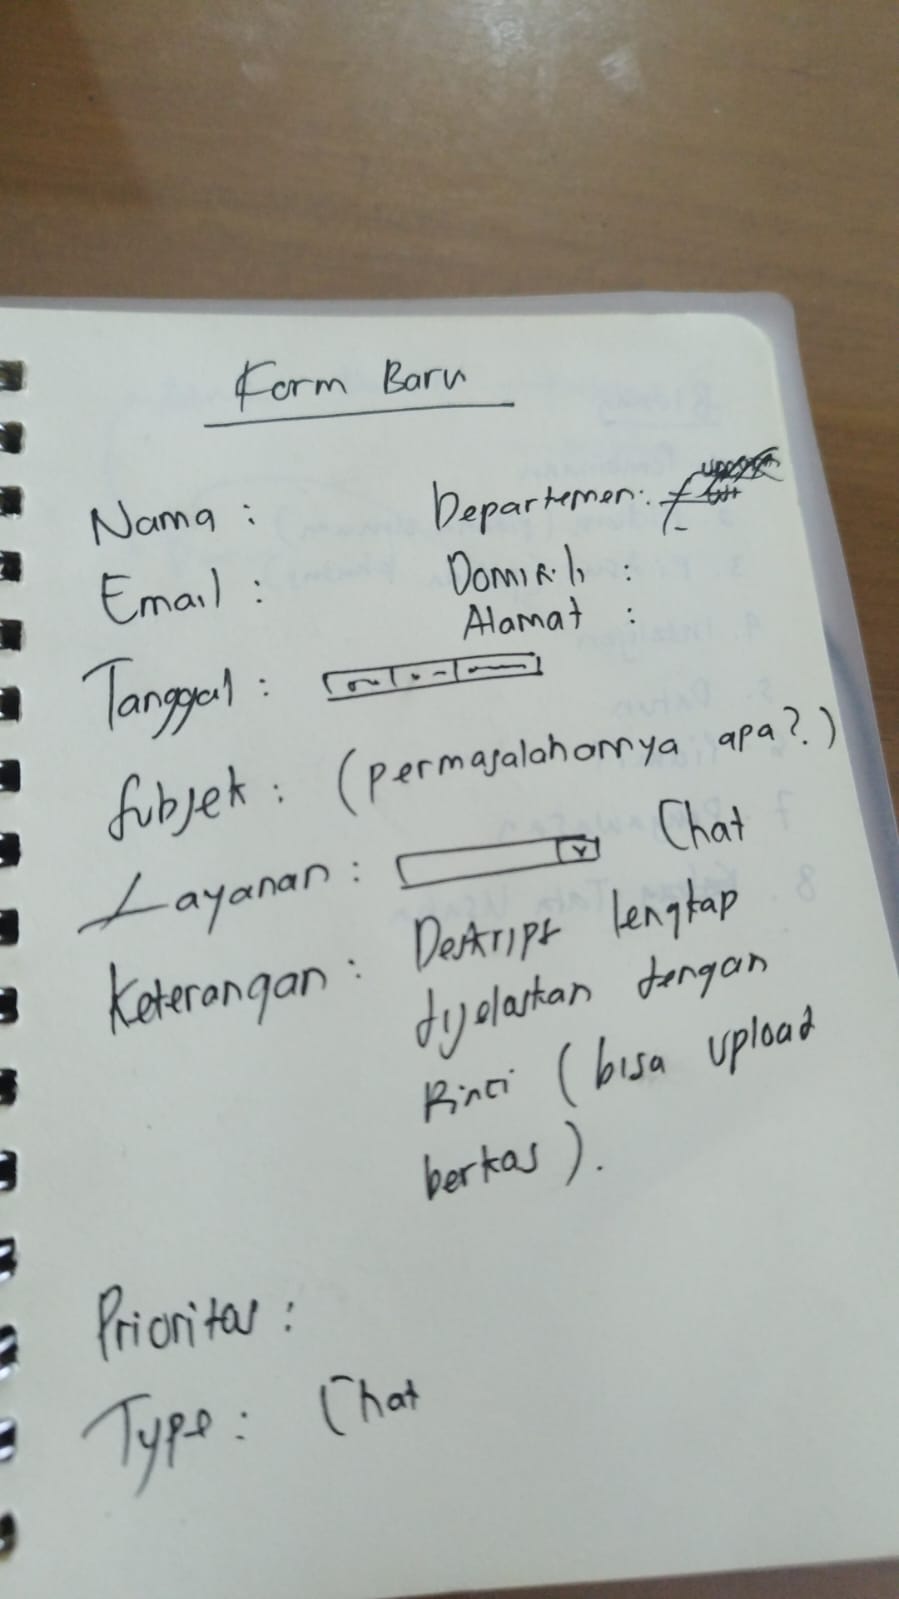 Form Baru
Nama : Departemen :
Email : Domisili :
Alamat :
Tanggal :
Subjek : (permasalahannya apa?)
Layanan : Chat
Keterangan : Deskripsi lengkap
dijelaskan dengan
Rinci (bisa upload
berkas).
Prioritas :
Type : Chat